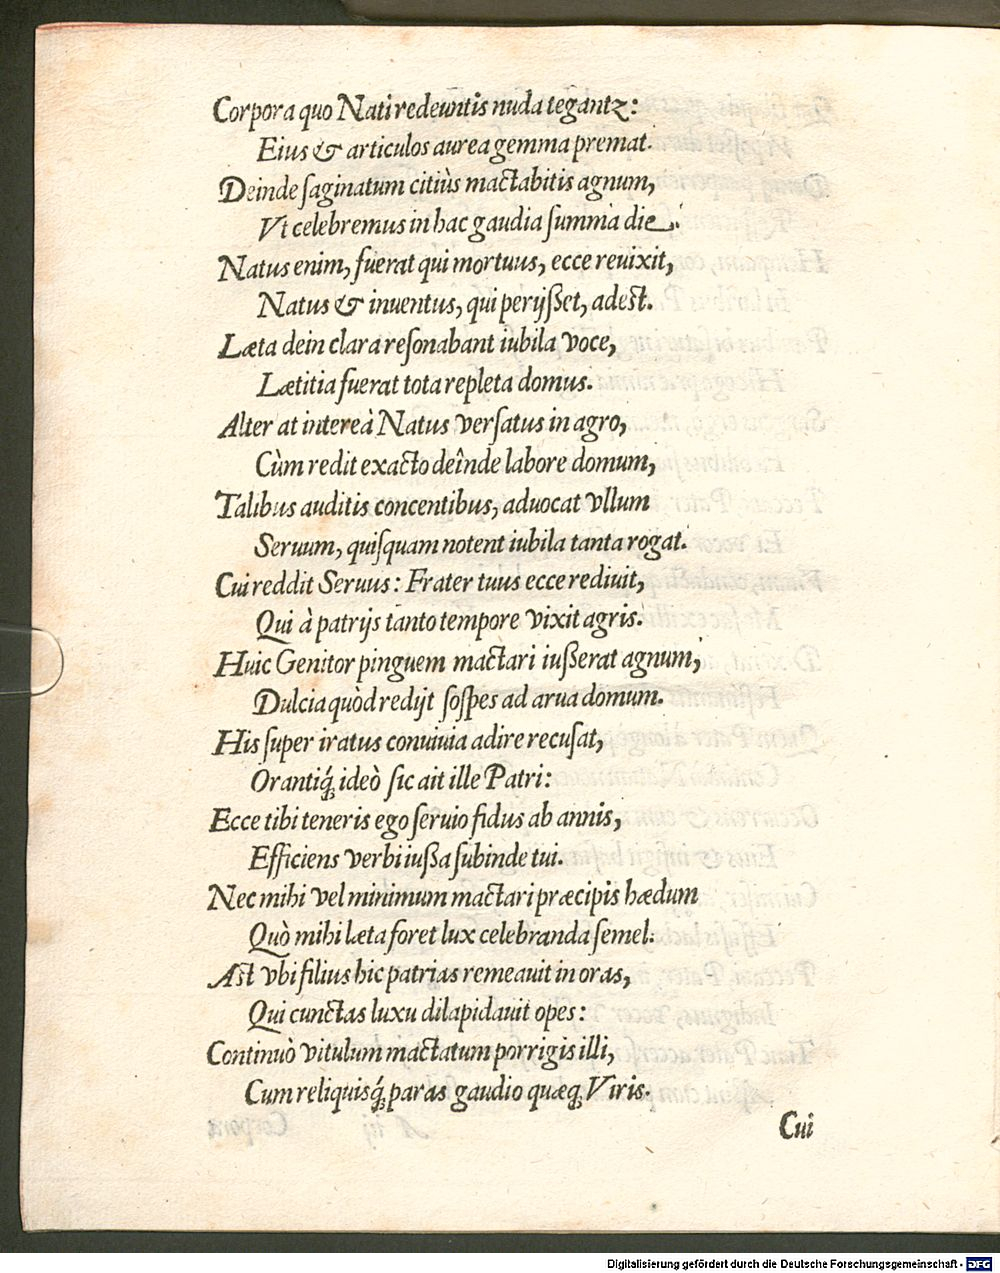 Corpora quo Nati redeuntis nuda tegantꝛ:
Eius & articulos aurea gemma premat.
Deinde ſaginatum citiùs mactabitis agnum,
Vt celebremus in hac gaudia ſumma die.
Natus enim, fuerat qui mortuus, ecce reuixit,
Natus & inuentus, qui perijſſet, adest.
Læta dein clara reſonabant iubila voce,
Lætitia fuerat tota repleta domus.
Alter at intereà Natus verſatus in agro,
Cùm redit exacto deînde labore domum,
Talibus auditis concentibus, aduocat vllum
Seruum, quiſquam notent iubila tanta rogat.
Cui reddit Seruus: Frater tuus ecce rediuit,
Qui à patrijs tanto tempore vixit agris.
Huic Genitor pinguem mactari iuſſerat agnum,
Dulcia quòd redijt ſoſpes ad arua domum.
His ſuper iratus conuiuia adire recuſat,
Orantiq́; ideò ſic ait ille Patri:
Ecce tibi teneris ego ſeruio fidus ab annis,
Efficiens verbi iuſſa ſubinde tui.
Nec mihi vel minimum mactari præcipis hædum
Quò mihi læta foret lux celebranda ſemel.
Ast vbi filius hic patrias remeauit in oras,
Qui cunctas luxu dilapidauit opes:
Continuò vitulum mactatum porrigis illi,
Cum reliquisq́; paras gaudio quæq; Viris.
Cui
Digitalisierung gefördert durch die Deutsche Forschungsgemeinschaft - DFG